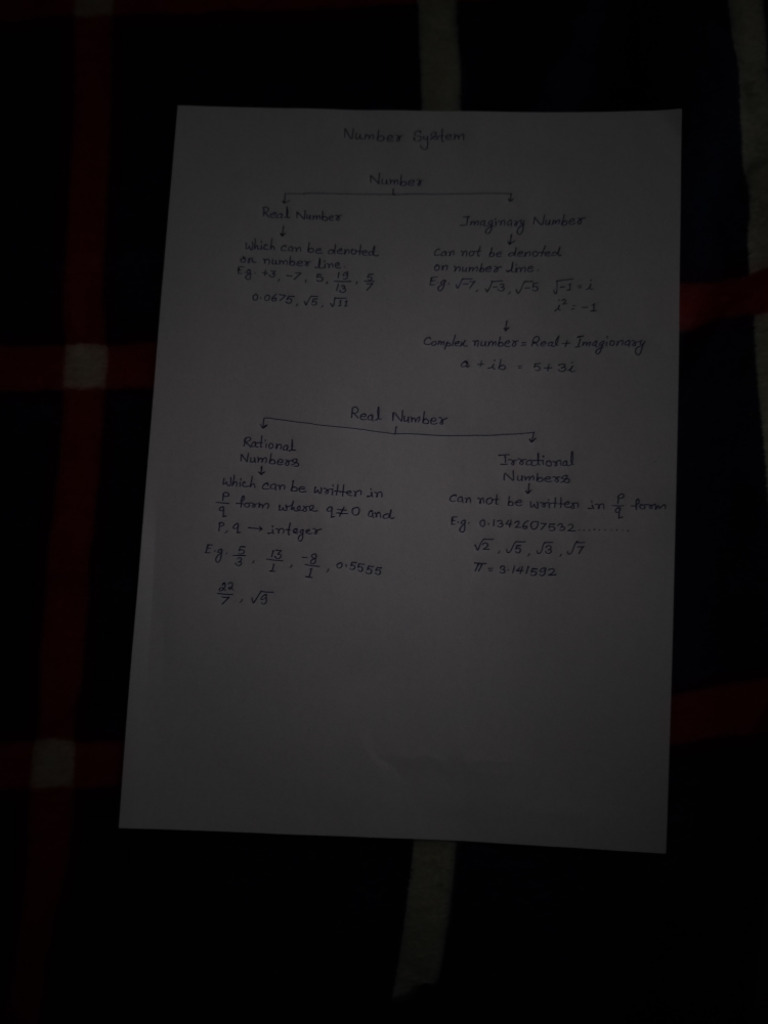 Number System
Number
Real Number
Imaginary Number
Which can be denoted
on number line.
E.g. +3, -7, 5, 19/13, 5/7
0.0675, √5, √11
Can not be denoted
on number line.
E.g. √-7, √-3, √-5 √-1 = i
i² = -1
Complex number = Real + Imagionary
a + ib = 5 + 3i
Real Number
Rational
Numbers
Which can be written in
P/q form where q ≠ 0 and
P, q → integer
E.g. 5/3, 13/1, -8/1, 0.5555
22/7, √9
Irrational
Numbers
Can not be written in P/q form
E.g. 0.1342607532..........
√2, √5, √3, √7
π = 3.141592